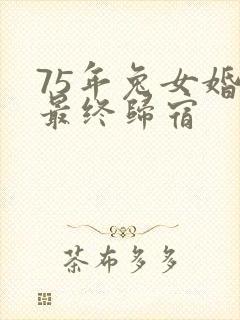 75年兔女婚
最终归宿
茶布多多